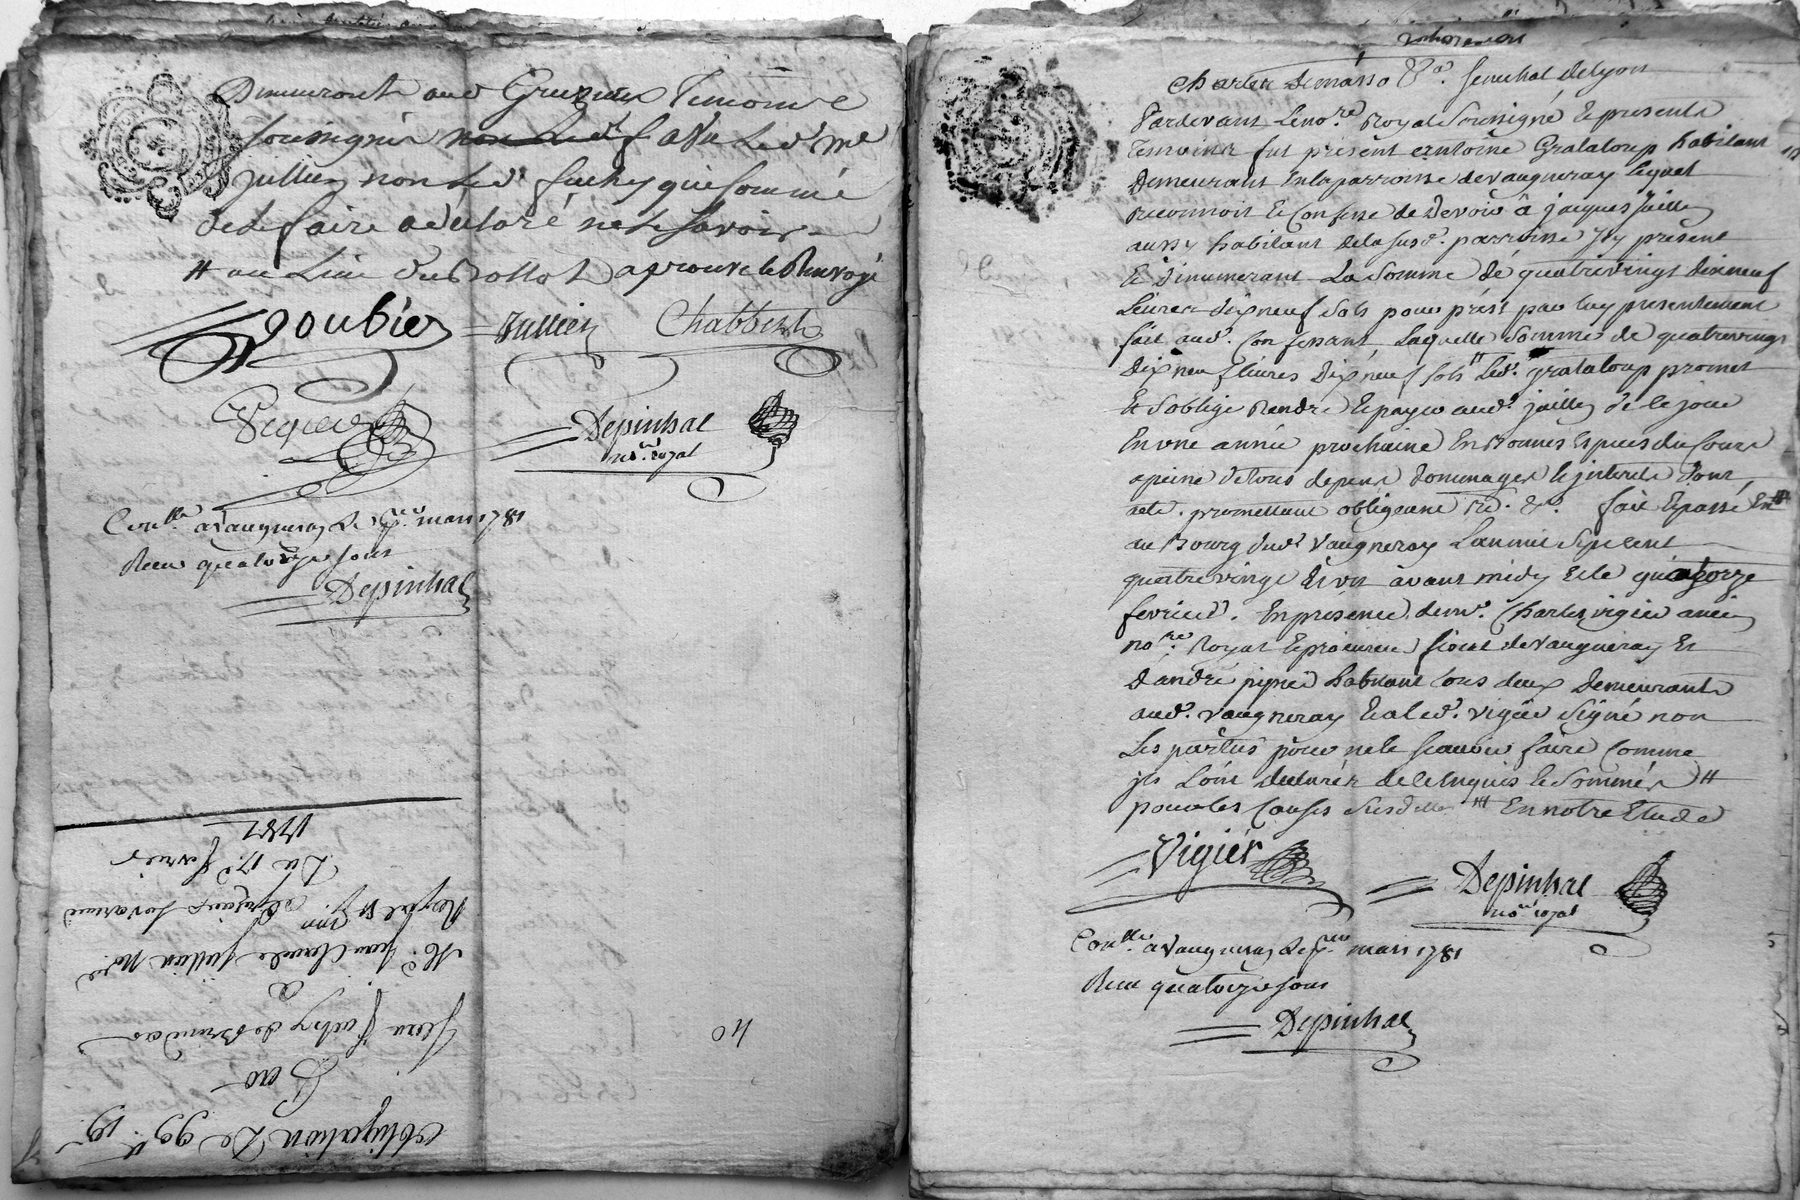 Demeurants aud Grezieux Temoins
soussignés non led f a Vu led me
jullien non led fachy qui sommé
de le faire a declaré ne le savoir
# au Lieu du Rollot aprouve le Renvoyé
goubier Jullien Chabbert
Depinhal
no.re royal
Con.lle a Vaugneray Le p.er mars 1781
Receu quatorze sous
Depinhal
Obligation De 99# 19s
Pero
Jean fachy de Brindas
a
M.e Jean Claude Jullien No.re
Royal
Du 17.e fevrier
1781
40
Charles Demasso &a. Senechal de Lyon
Pardevant Le no.re Royal Soussigné Et presents
temoins fut présent antoine Grataloup habitant
Demeurant En la parroisse de vaugneray lequel
Reconnoit Et Confesse de Devoir à jacques jaillet
aussy habitant de la susd. parroisse jcy présent
Et Demeurant La Somme de quatrevingt dixneuf
Livres dixneuf Sols pour prést par luy presentement
fait aud. Confessant, Laquelle Somme de quatrevingt
Dix neuf livres Dix neuf sols # Led. grataloup promet
Et Soblige Rendre Et payer aud. jaillet de ce jour
En une année prochaine En Bonnes Especes du Cours
a peine de tous depens Dommages Et jnterets Dont
acte. promettant obligeant &c. &c. fait Et passé
au Bourg dud. Vaugneray Lan mil Sept cent
quatre vingt Et un avant midy Et le quatorze
fevrier. En presence de m.e Charles vigier ancien
no.re Royal Et procureur fiscal de Vaugneray Et
D'andré pipier habitant tous deux Demeurants
aud. Vaugneray Et a led. vigier Signé non
Les parties pour ne le scavoir faire Comme
jls Lont declaré de ce Enquis Et Sommés #
pour les Causes Susdittes ## En notre Etude
Vigier Depinhal
no.re royal
Con.lle a Vaugneray Le p.er mars 1781
Receu quatorze sous
Depinhal